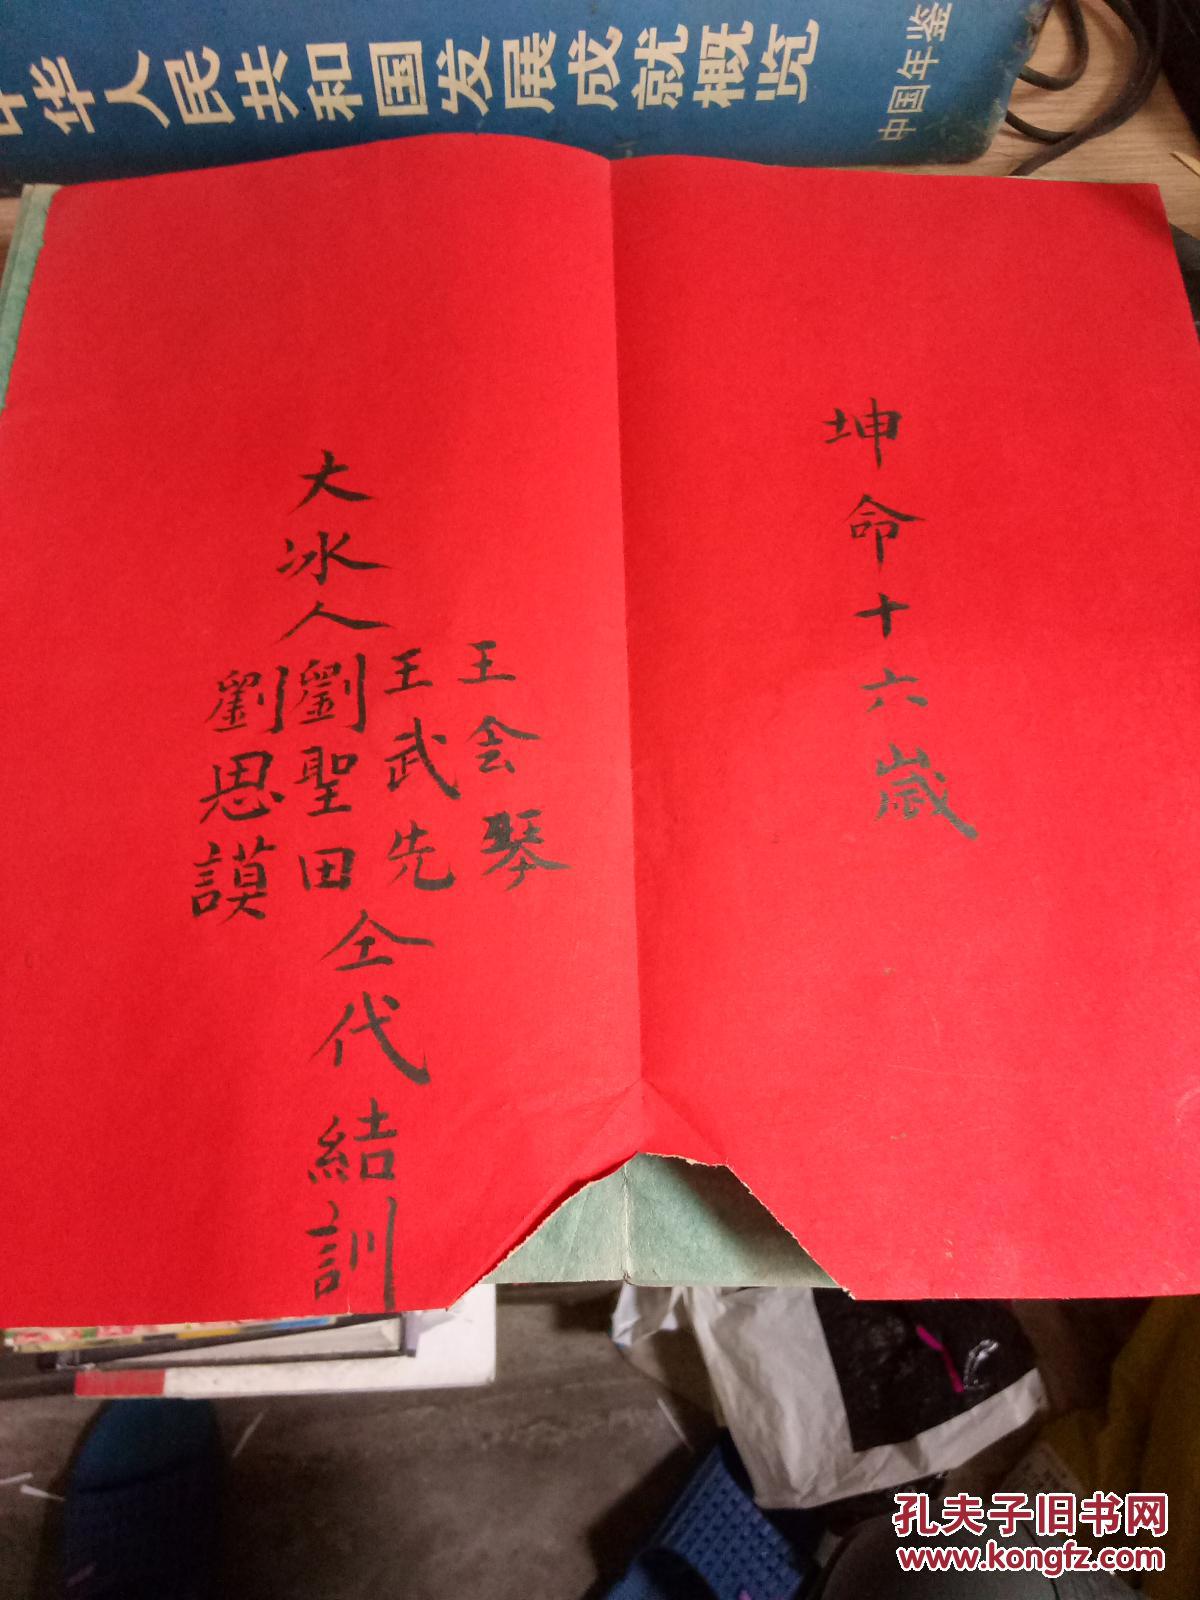 中华人民共和国发展成就概览
中国年鉴
坤命十六歲
大冰人
王会琴
王武先
劉聖田
劉思謨
仝代結訓
孔夫子旧书网
www.kongfz.com